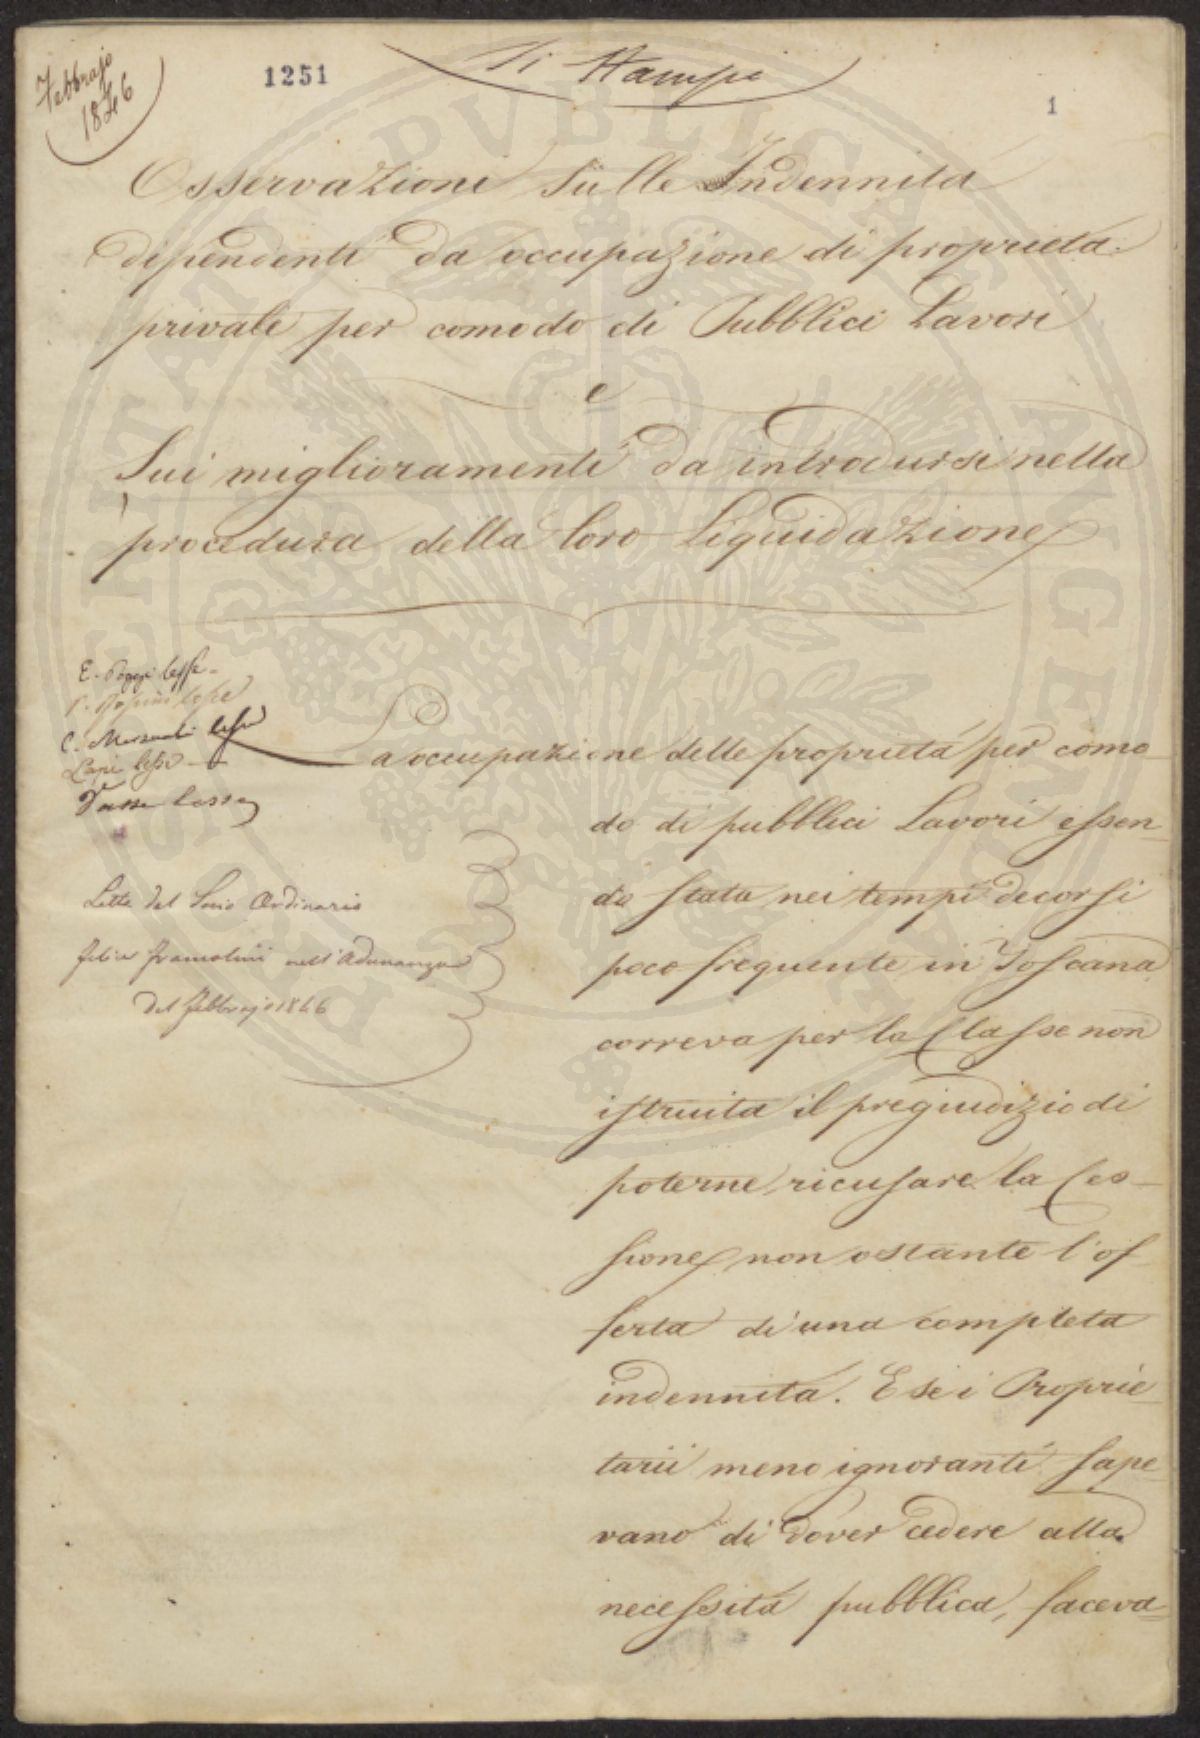 Febbrajo
1846
1251
Si Stampi
1
Osservazioni sulle Indennità
dipendenti da occupazione di proprietà
private per comodo di Pubblici Lavori
e
Sui miglioramenti da introdursi nella
procedura della loro Liquidazione
E. Poggi lesse
lesse
C. lesse
Lapi lesse
lesse
Letta dal Socio Ordinario
nell'Adunanza
del Febbrajo 1846
La occupazione delle proprietà per como-
do di pubblici Lavori essen-
do stata nei tempi decorsi
poco frequente in Toscana
correva per la Classe non
istruita il pregiudizio di
poterne ricusare la Ces-
sione non ostante l'of-
ferta di una completa
indennità. E se i Proprie-
tarii meno ignoranti sape-
vano di dover cedere alla
necessità pubblica, faceva-